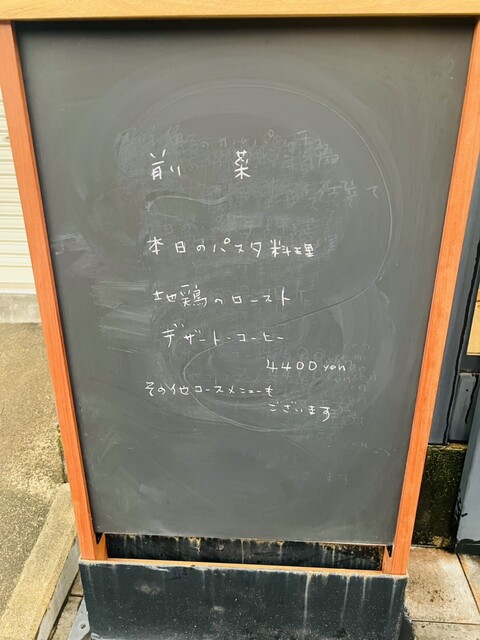 前菜
本日のパスタ料理
地鶏のロースト
デザート・コーヒー
4400yen
その他コースメニューも
ございます